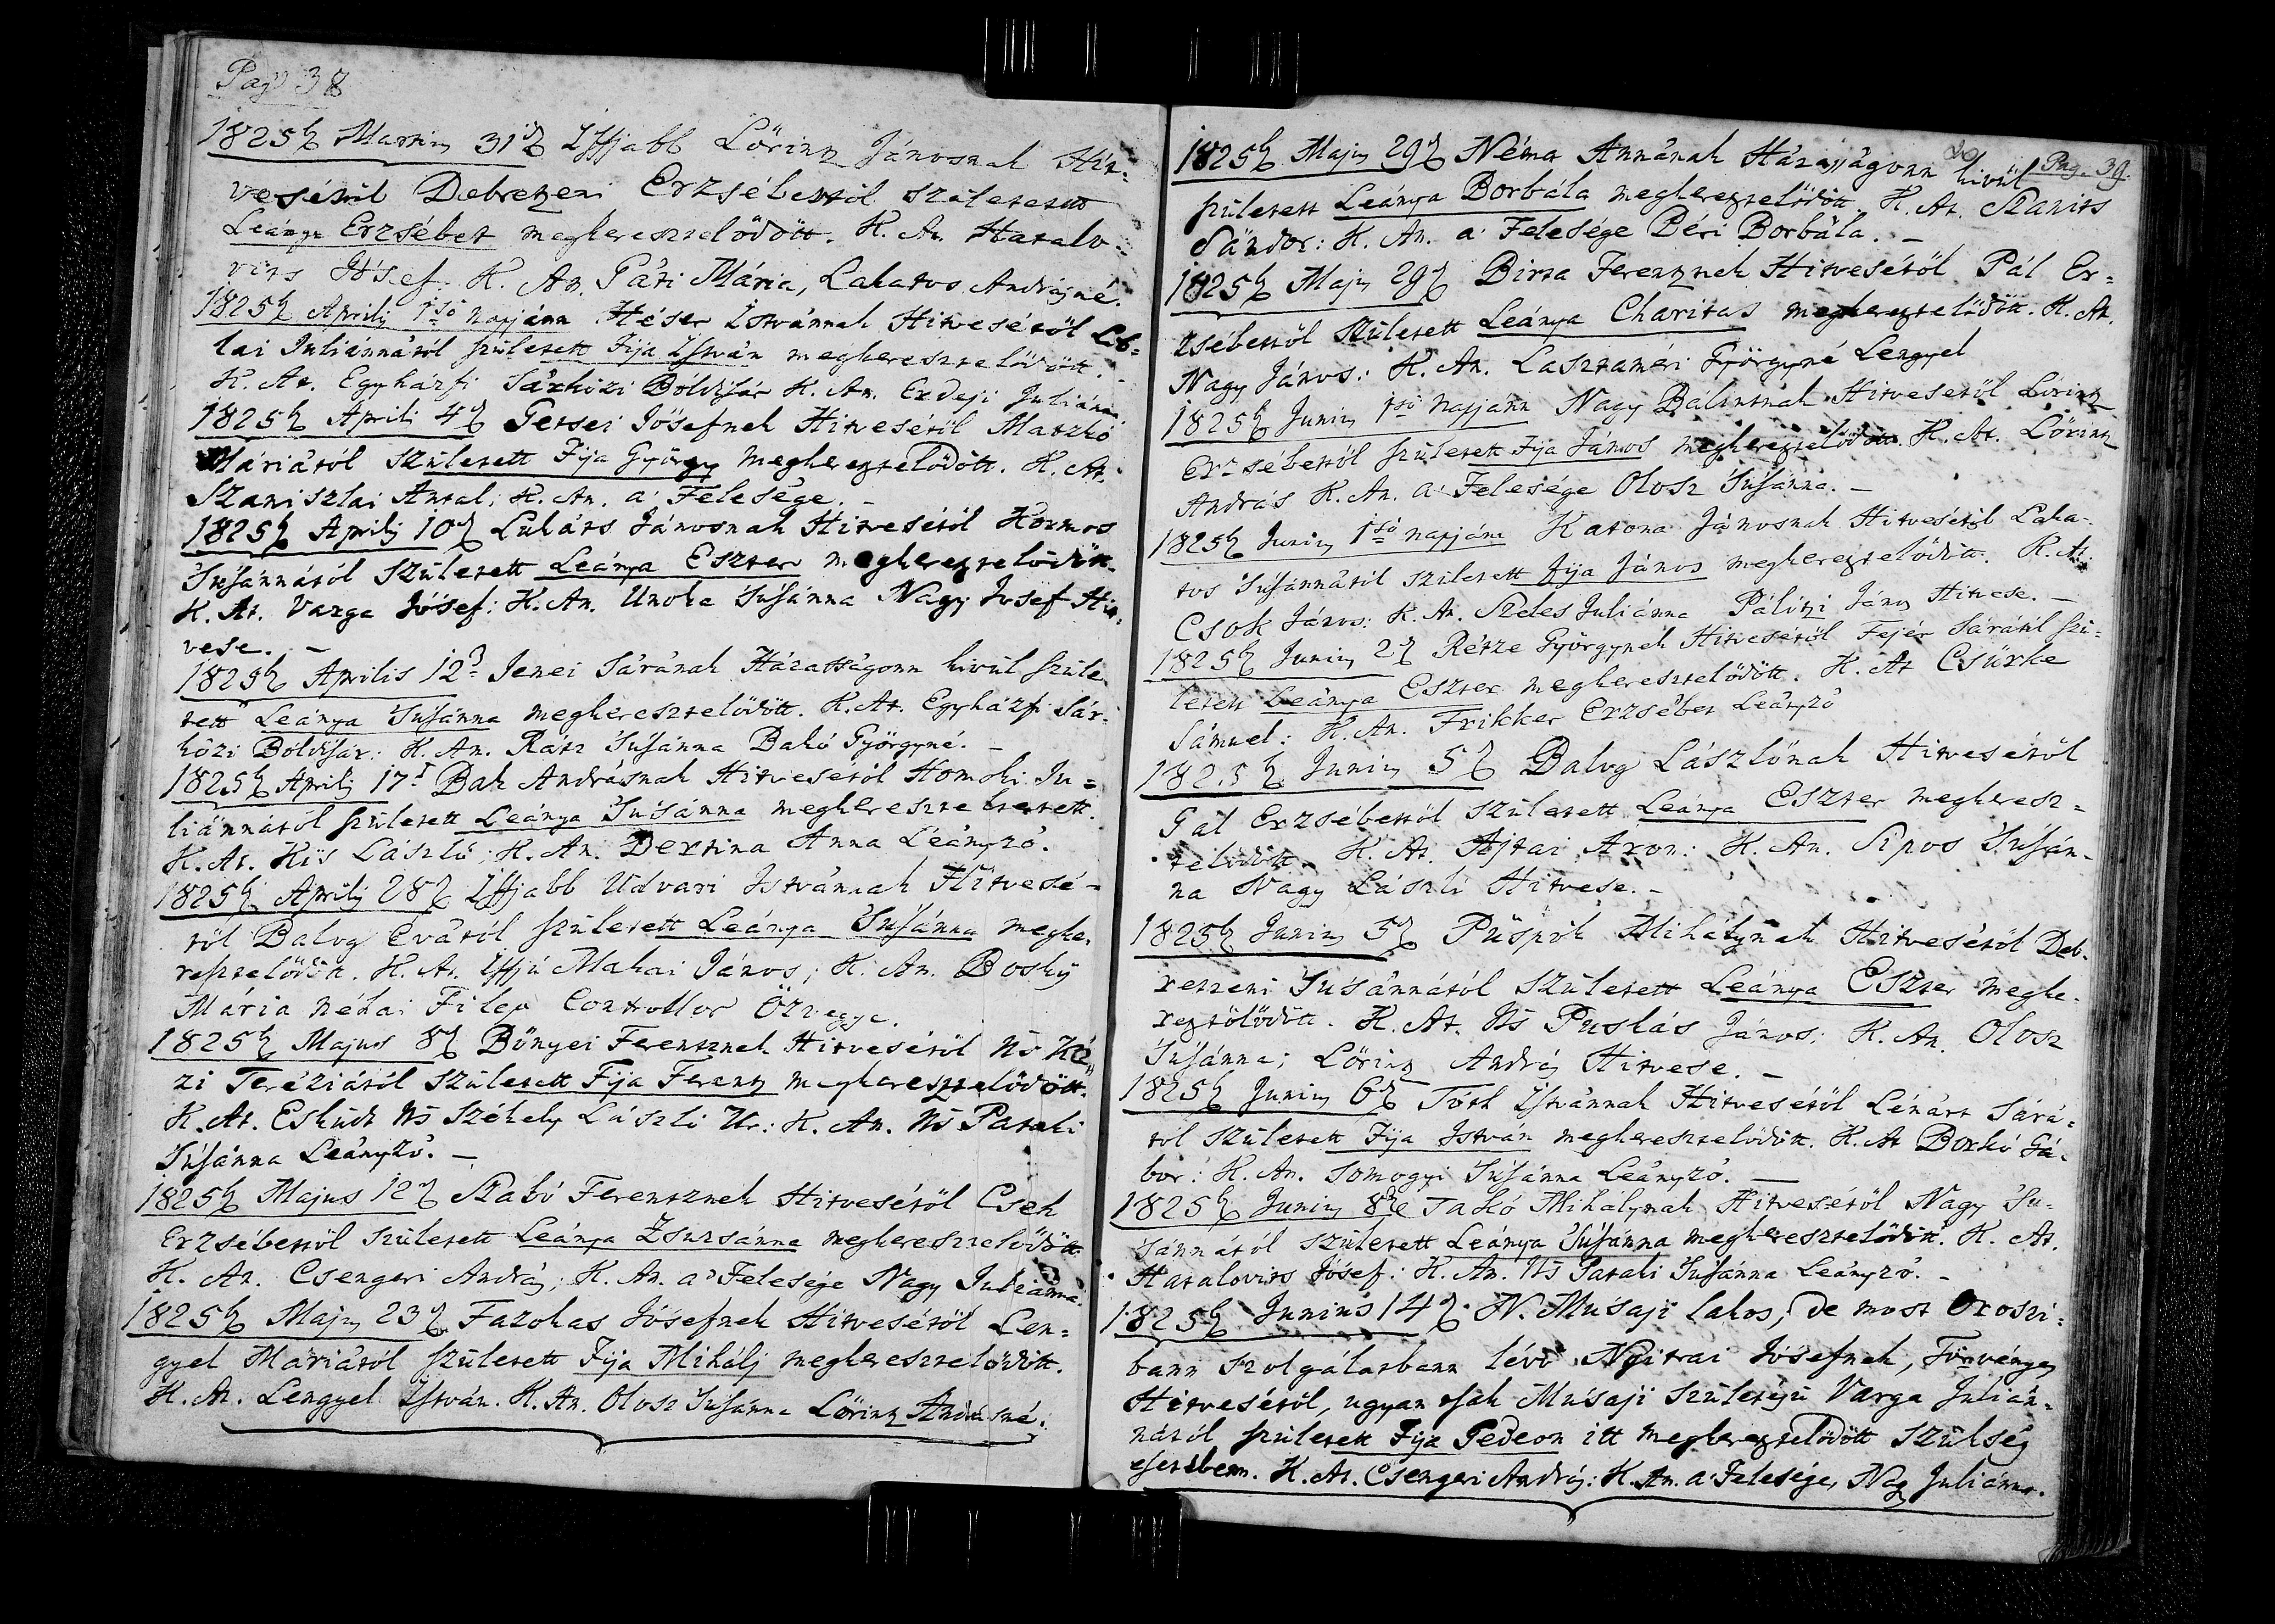 Pag. 38
1825b Martius 31d Iffjabb Lőrintz Jánosnak Hit-
vesétől Debretzeni Erzsébettől születetett
Leánya Erzsébet megkeresztelődött. K. At. Hatalo-
vits Jósef. K. An. Páti Mária, Lakatos Andrásné.
1825b Aprilis 1ső napjánn Héser Istvánnak Hitvesétől
lai Juliánnától született Fija István megkeresztelődött.
K. At. Egyházfi Sárközi Boldisár K. An. Erdeji Juliánna
1825b Aprili 4d Getsei Jósefnek Hitvesétől Matzkó
Máriától született Fija György megkereztelődött. K. At.
Szaniszlai Antal; K. An. a' Felesége. –
1825b Aprilis 10d Lukáts Jánosnak Hitvesétől Kormos
Susánnától született Leánya Eszter megkereztelődött.
K. At. Varga Jósef: K. An. Unoka Susánna Nagy Josef Hit-
vese. –
1825b Aprilis 12d Jenei Sárának Házasságonn kivül szüle-
tett Leánya Susánna megkeresztelődött. K. At. Egyházfi Sár-
közi Boldisár: K. An. Rátz Susánna Bakó Györgyné. –
1825b Aprilis 17d Bak Andrásnak Hitvesetől Homoki Ju-
liánnától született Leánya Susánna megkereszteltetett.
K. At. Kis László; K. An. Dertina Anna Leányzó.
1825b Aprilis 28d Iffjabb Udvari Istvánnak Hitvesé-
től Balog Évától született Leánya Susánna megke-
resztelődött. K. At. Iffjú Makai János; K. An. Bosky
Mária néhai Filep Controllor Özvegye.
1825b Majus 8d Bönyei Ferentznek Hitvesétől Ns Ké-
zi Teréziától született Fija Ferentz megkeresztelődött.
K. At. Esküdt Ns Székely László Ur: K. An. Ns Pataki
Susánna Leányzó. –
1825b Majus 12d Szabó Ferentznek Hitvesétől Cseh
Erzsébettől született Leánya Zsuzsánna megkeresztelődött.
K. At. Csengeri András; K. An. a' Felesége Nagy Juliánna.
1825b Majus 23d Fazokas Jósefnek Hitvesétől Len-
gyel Máriától született Fija Mihálj megkeresztelődött.
K. At. Lengyel István. K. An. Olosz Susánna Lőrintz Andrásné.
Pag. 39.
1825b Majus 29d Néma Annának Házasságonn kivül
született Leánya Borbála megkereztelődött. K. At. Szanits
Sándor: K. An. a' Felesége Béri Borbála. –
1825b Majus 29d Birta Ferentznek Hitvesétől Pál Er-
zsébettől született Leánya Charitas megkereztelődött. K. At.
Nagy János: K. An. Györgyné Lengyel
1825b Junius 1ső napjánn Nagy Bálintnak Hitvesetől Lőrintz
Ersébettől született Fija János megkereztelődött. K. At. Lőrintz
András K. An. a' Felesége Olosz Susánna. –
1825b Junius 1ső napjánn Katona Jánosnak Hitvesétől Laka-
tos Susánnától született Fija János megkereztelődött. K. At.
Csok János: K. An. Szeles Juliánna Pálótzi János Hitvese. –
1825b Junius 2d Rétze Györgynek Hitvesétől Fejér Sárától szü-
letett Leánya Eszter megkeresztelődött. K. At Csürke
Sámuel: K. An. Frikker Erzsébet Leányzó
1825b Junius 5d Balog Lászlónak Hitvesétől
Gál Erzsébettől született Leánya Eszter megkeresz-
telődött. K. At. Ajtai Áron: K. An. Sipos Susán-
na Nagy László Hitvese. –
1825b Junius 5d Püspök Mihálynak Hitvesétől Deb-
retzeni Susánnától született Leánya Eszter megke-
reztelődött. K. At. Ns Puskás János: K. An. Olosz
Susánna; Lőrintz András Hitvese. –
1825b Junius 6d Tóth Istvánnak Hitvesétől Lénárt Sárá-
tól született Fija István megkeresztelődött. K. At Borkó Gá-
bor: K. An. Somogyi Susánna Leányzó. –
1825b Junius 8d Takó Mihálynak Hitvesétől Nagy Su-
sánnától született Leánya Susánna megkeresztelődött. K. At.
Hatalovits Jósef: K. An. Ns Pataki Susánna Leányzó. –
1825b Junius 14d N. Musaji lakos, de most Oroszi-
bann szolgálatbann lévő Nyitrai Jósefnek, Törvényes
Hitvesétől, ugyan tsak Musaji születésü Varga Julián-
nától született Fija Gedeon itt megkereztelődött szükség
esetébenn. K. At. Csengeri András: K. An. a' Felesége, Nagy Juliánna.